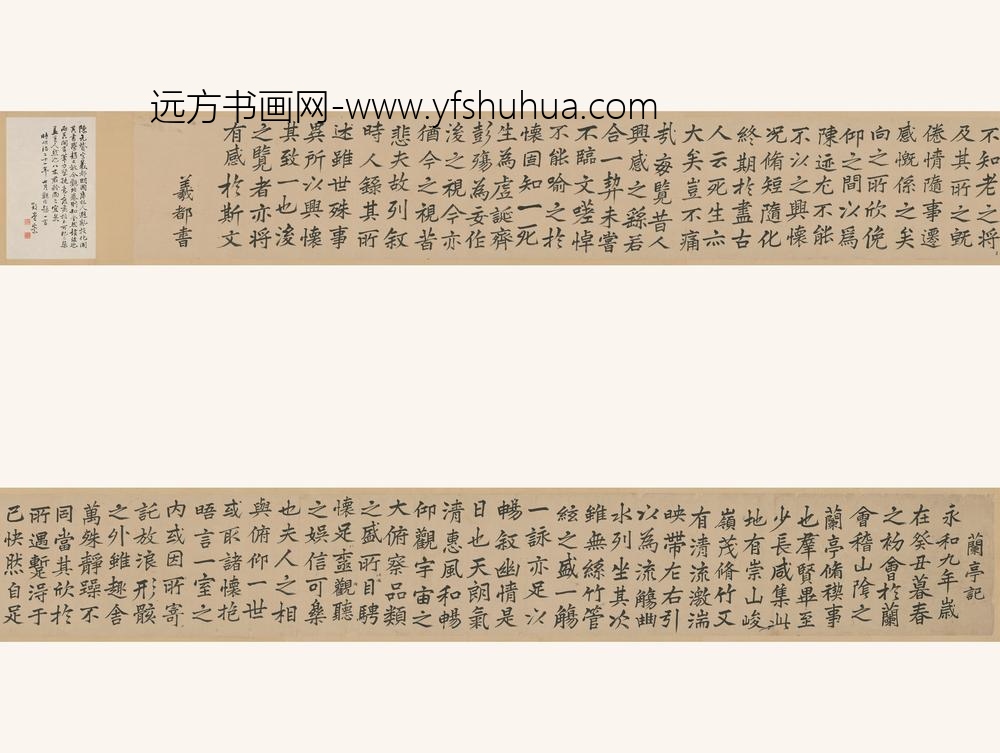 远方书画网-www.yfshuhua.com
蘭亭記
永和九年歲
在癸丑暮春
之初會於蘭
會稽山陰之
蘭亭脩稧事
也羣賢畢至
少長咸集此
地有崇山峻
嶺茂脩竹又
有清流激湍
映帶左右引
以為流觴曲
水列坐其次
雖無絲竹管
絃之盛一觴
一詠亦足以
暢叙幽情是
日也天朗氣
清惠風和暢
仰觀宇宙之
大俯察品類
之盛所目騁
懷足壼觀聽
之娛信可樂
也夫人之相
與俯仰一世
或取諸懷抱
晤言一室之
内或因所寄
託放浪形骸
之外雖趣舍
萬殊靜躁不
同當其欣於
所遇蹔淂于
已快然自足
不知老之將
及其所之旣
倦情隨事遷
感慨係之矣
向之所欣俛
仰之間以爲
陳迹尤不能
不以之興懷
况脩短隨化
終期於盡古
人云死生亦
大矣豈不痛
哉每覽昔人
興感之繇若
合一契未嘗
不臨文嗟悼
不能喻之於
懷固知一死
生為虛誕齊
彭殤為妄作
後之視今亦
猶今之視昔
悲夫故列叙
時人錄其所
述雖世殊事
異所以興懷
其致一也後
之覽者亦將
有感於斯文
羲都書